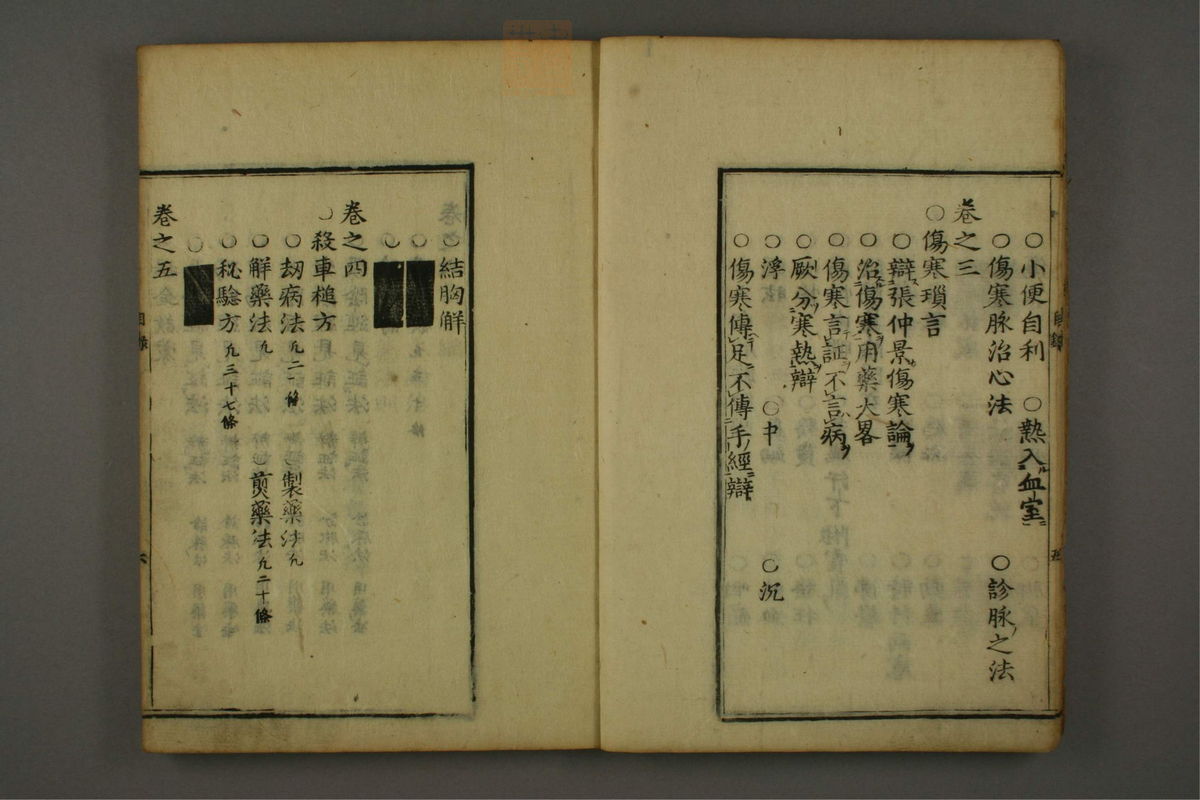 ○小便自利　○熱入血室　○診脉之法
○傷寒脉治心法
卷之三
○傷寒瑣言
○辯張仲景傷寒論
○治傷寒用藥大畧
○傷寒言証不言病
○厥分寒熱辯
○浮　○中　○沉
○傷寒傳足不傳手經辯
○結胸解
○
○
卷之四
○殺車槌方
○劫病法九二一條　○製藥法九
○解藥法九　○煎藥法九二十條
○秘驗方九三十七條
○
卷之五